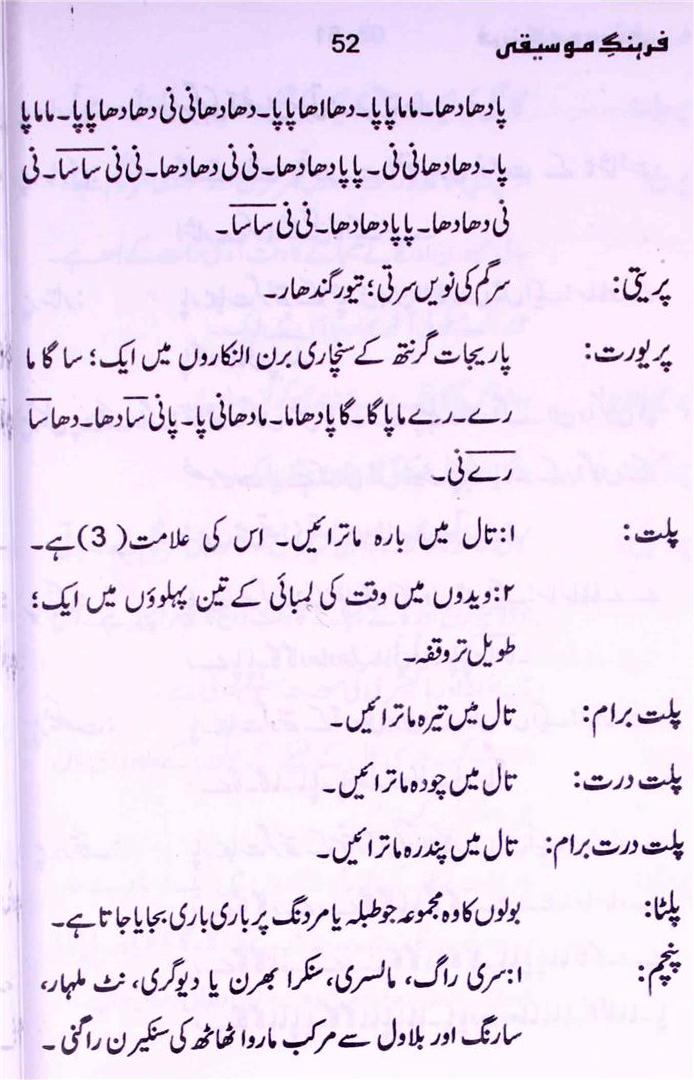 فرہنگِ موسیقی 52
پا دھا دھا۔ ما ما پا پا۔ دھا ا دھا پا پا۔ دھا دھا نی نی دھا دھا پا پا۔ ما ما پا
پا۔ دھا دھا نی نی۔ پا پا دھا دھا۔ نی نی دھا دھا۔ نی نی سا سا۔ نی
نی دھا دھا۔ پا پا دھا دھا۔ نی نی سا سا۔
پریتی: سرگم کی نویں سرتی؛ تیور گندھار۔
پریورت: پاریجات گرنتھ کے سنچاری برن النکاروں میں ایک؛ سا گا ما
رے۔ رے ما پا گا۔ گا پا دھا ما۔ ما دھا نی پا۔ پا نی سا دھا۔ دھا سا
رے نی۔
پلت: ۱: تال میں بارہ ماترائیں۔ اس کی علامت (3) ہے۔
۲: ویدوں میں وقت کی لمبائی کے تین پہلوؤں میں ایک؛
طویل تر وقفہ۔
پلت برام: تال میں تیرہ ماترائیں۔
پلت درت: تال میں چودہ ماترائیں۔
پلت درت برام: تال میں پندرہ ماترائیں۔
پلٹا: بولوں کا وہ مجموعہ جو طبلہ یا مردنگ پر باری باری بجایا جاتا ہے۔
پنچم: ۱: سری راگ، مالسری، سنکرا بھرن یا دیوگری، نٹ ملہار،
سارنگ اور بلاول سے مرکب ماروا ٹھاٹھ کی سنکیرن راگنی۔